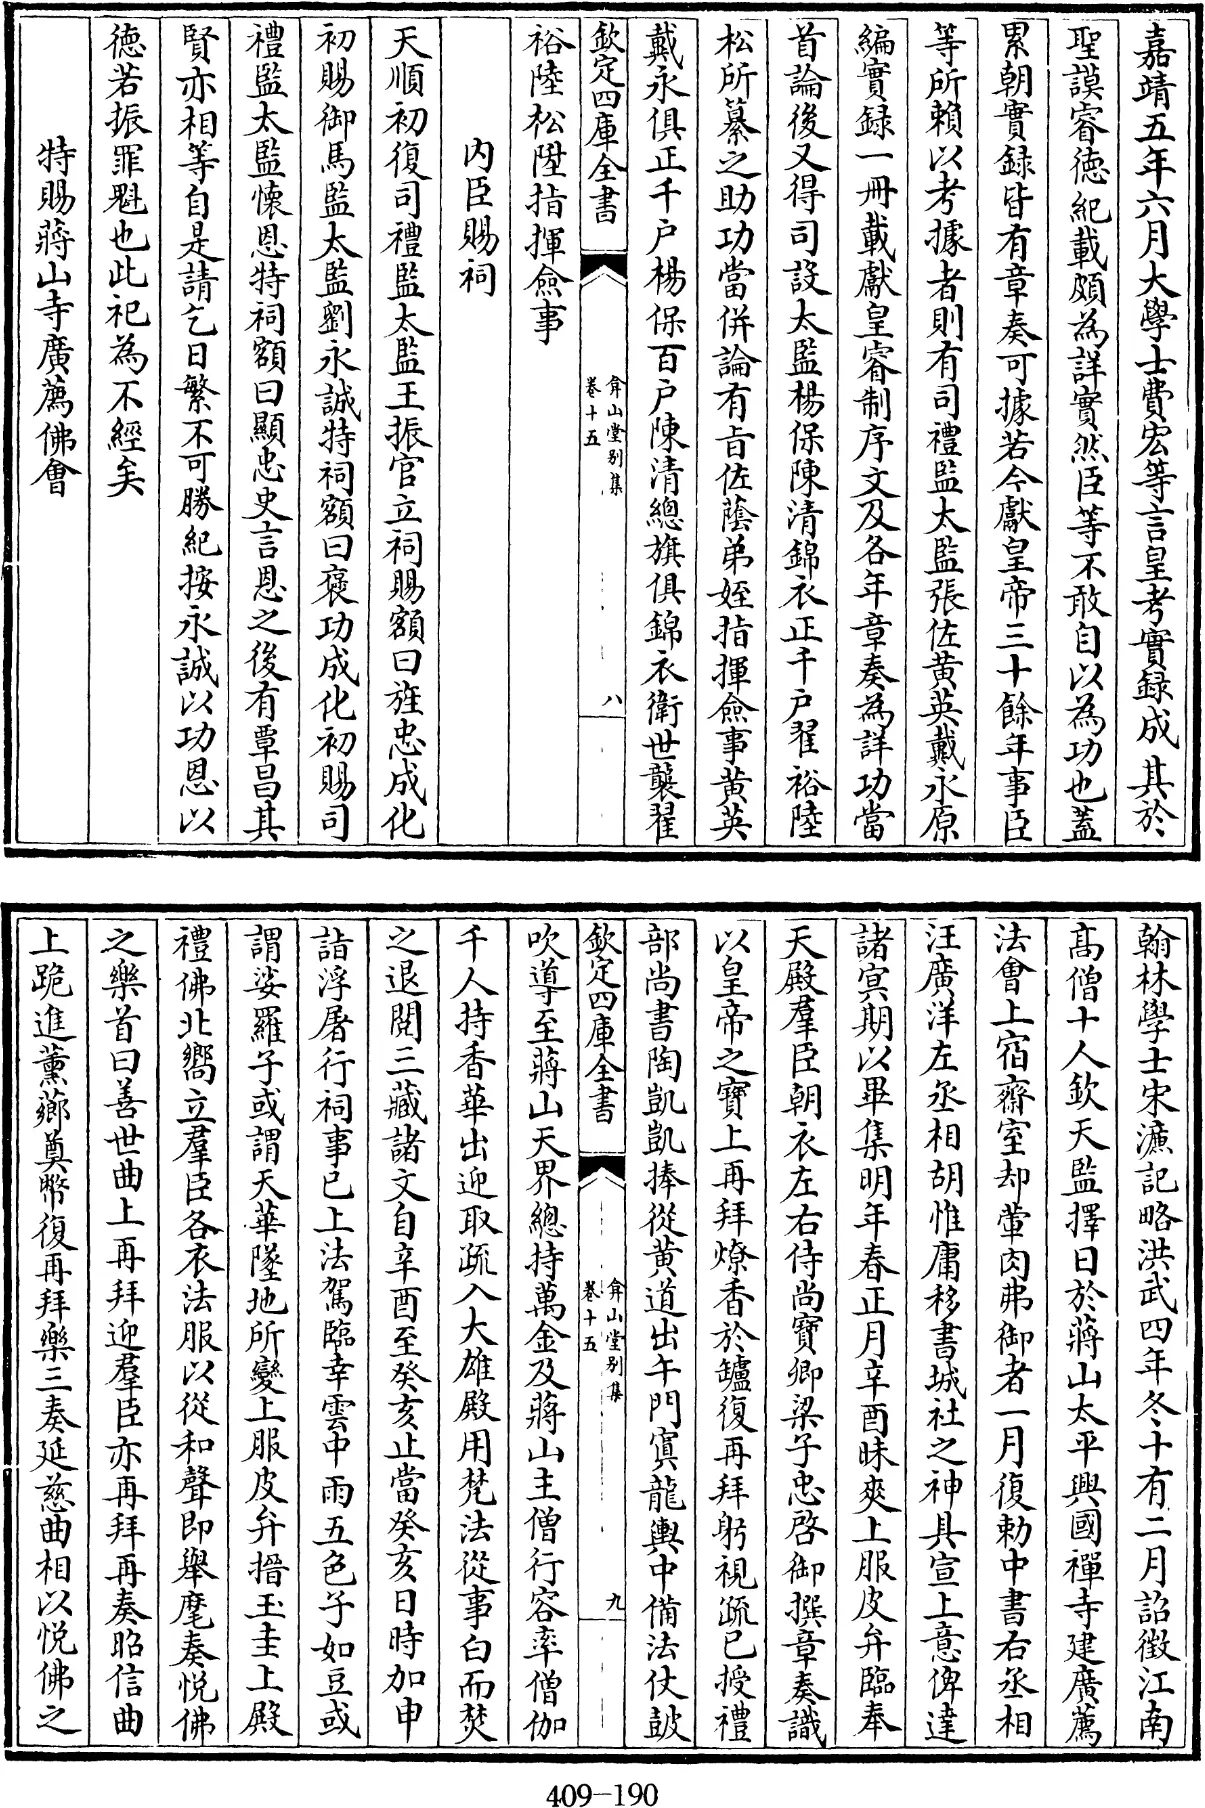 嘉靖五年六月大學士費宏等言皇考實録成其於
聖謨睿徳紀載頗為詳實然臣等不敢自以為功也蓋
累朝實録皆有章奏可據若今獻皇帝三十餘年事臣
等所賴以考據者則有司禮監太監張佐黄英戴永原
編實録一冊載獻皇睿制序文及各年章奏為詳功當
首論後又得司設太監楊保陳清錦衣正千户翟裕陸
松所纂之助功當併論有㫖佐蔭弟姪指揮僉事黄英
戴永俱正千户楊保百户陳清總旗俱錦衣衛世襲翟
欽定四庫全書
弇山堂别集
卷十五
八
裕陸松陞指揮僉事
内臣賜祠
天順初復司禮監太監王振官立祠賜額曰旌忠成化
初賜御馬監太監劉永誠特祠額曰褒功成化初賜司
禮監太監懷恩特祠額曰顯忠史言恩之後有覃昌其
賢亦相等自是請乞日繁不可勝紀按永誠以功恩以
徳若振罪魁也此祀為不經矣
特賜蔣山寺廣薦佛會
翰林學士宋濂記略洪武四年冬十有二月詔徵江南
髙僧十人欽天監擇日於蔣山太平興國禪寺建廣薦
法會上宿齋室却葷肉弗御者一月復勅中書右丞相
汪廣洋左丞相胡惟庸移書城社之神具宣上意俾達
諸㝠期以畢集明年春正月辛酉昧爽上服皮弁臨奉
天殿羣臣朝衣左右侍尚寶卿梁子忠啓御撰章奏識
以皇帝之寶上再拜燎香於鑪復再拜躬視疏已授禮
部尚書陶凱凱捧從黄道出午門寘龍輿中備法仗鼓
欽定四庫全書
弇山堂别集
卷十五
九
吹導至蔣山天界總持萬金及蔣山主僧行容率僧伽
千人持香華出迎取疏入大雄殿用梵法從事白而焚
之退閲三藏諸文自辛酉至癸亥止當癸亥日時加申
詣浮屠行祠事已上法駕臨幸雲中雨五色子如豆或
謂娑羅子或謂天華墜地所變上服皮弁搢玉圭上殿
禮佛北嚮立羣臣各衣法服以從和聲即舉麾奏悦佛
之樂首曰善世曲上再拜迎羣臣亦再拜再奏昭信曲
上跪進薰薌奠幣復再拜樂三奏延慈曲相以悦佛之
409-190